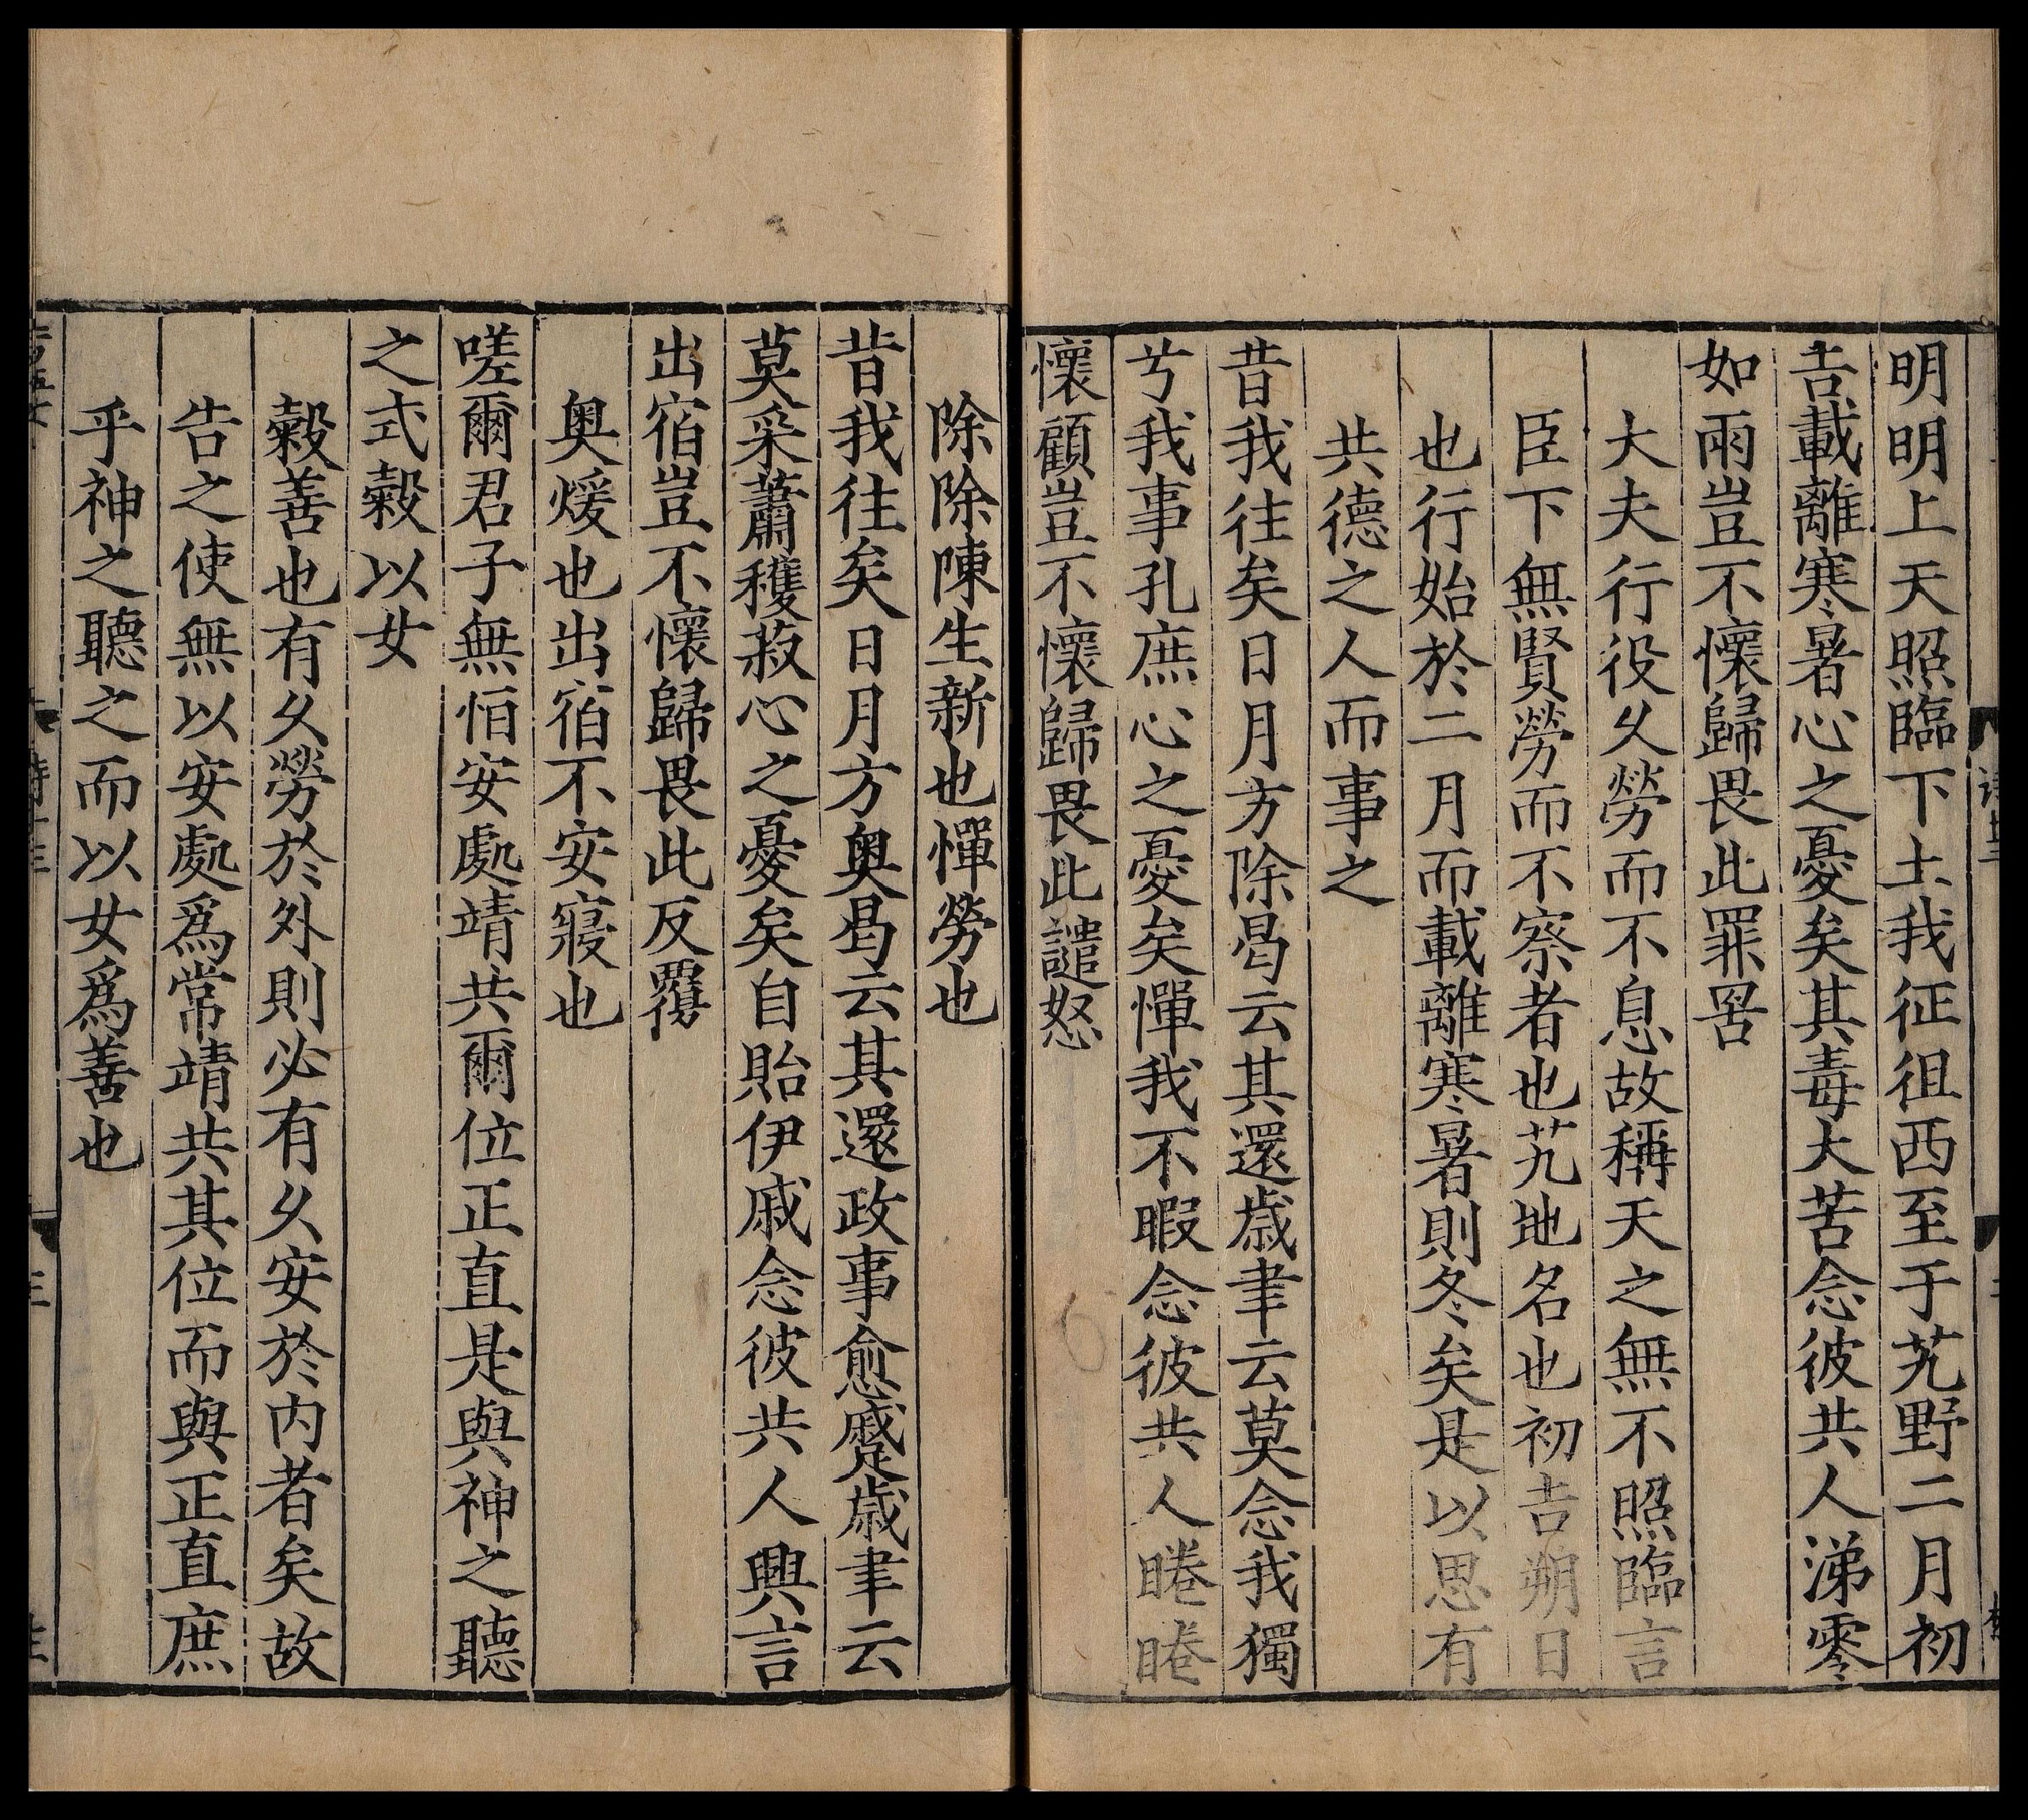 明明上天照臨下土我征徂西至于艽野二月初
吉載離寒暑心之憂矣其毒大苦念彼共人涕零
如雨豈不懷歸畏此罪罟
大夫行役久勞而不息故稱天之無不照臨言
臣下無賢勞而不察者也艽地名也初吉朔日
也行始於二月而載離寒暑則冬矣是以思有
共德之人而事之
昔我往矣日月方除曷云其還歲聿云莫念我獨
兮我事孔庶心之憂矣憚我不暇念彼共人睠睠
懷顧豈不懷歸畏此譴怒
除除陳生新也憚勞也
昔我往矣日月方奥曷云其還政事愈蹙歲聿云
莫采蕭穫菽心之憂矣自貽伊戚念彼共人興言
出宿豈不懷歸畏此反覆
奥煖也出宿不安寢也
嗟爾君子無恒安處靖共爾位正直是與神之聽
之式穀以女
穀善也有久勞於外則必有久安於内者矣故
告之使無以安處爲常靖共其位而與正直庶
乎神之聽之而以女爲善也
三